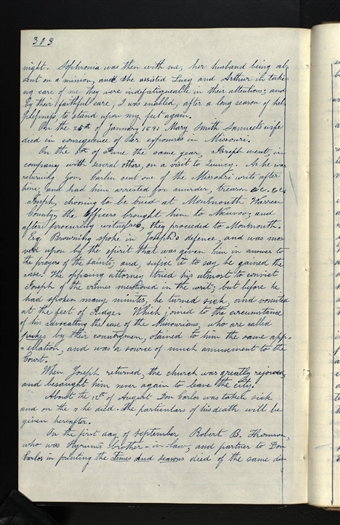 383
night. Sophronia was then with me, her husband being ab-
sent on a mission, and she assisted Lucy and Arthur in takin
ng care of me they were indefatigueable in their attentions; and
by their faithful care, I was enabled, after a long season of hel
plessness, to stand upon my feet again.
On the 25th of January 1841 Mary Smith Samuel's wife
died in consequence of her exposures in Missouri.
On the 5th of June the same year, Joseph went, in
company with several others, on a visit to Quincy. As he was
returning Gov. Carlin sent one of the Missouri writs after
him, and had him arrested for murder, treason &c. &c.
Joseph, choosing to be tried at Monmouth Warren
County, the officers brought him to Nauvoo, and
after procuring witnesses, they proceeded to Monmouth.
Esq. Browning spoke in Joseph's defence, and was mo-
ved upon by the spirit that was given him in answer to
the prayers of the saints; and, suffice it to say he gained the
case. The opposing attorney tried his utmost to convict
Joseph of the crimes mentioned in the writ; but before he
had spoken many minutes, he turned sick, and vomited
at the feet of the Judge. Which, joined to the circumstance
of his advocating the case of the Missourians, who are called
pukes by their countrymen, obtained to him the same app-
ellation, and was a source of much amusement to the
Court.
When Joseph returned, the church was greatly rejoiced,
and besought him never again to leave the city.
About the 1st of August Don Carlos was taken sick
and on the 7 he died. The particulars of his death will be
given hereafter.
On the first day of September, Robert B. Thomson,
who was Hyrum's brother-in-law, and partner to Don
Carlos in printing the Times and seasons died of the same de-